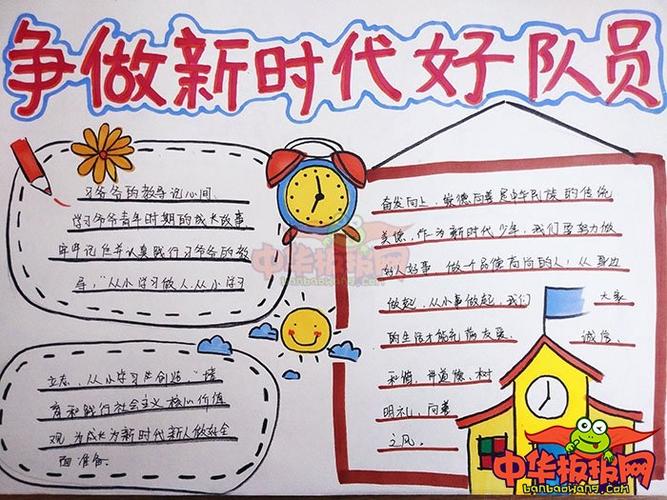 争做新时代好队员
习爷爷的教导记心间
学习爷爷青年时期的成长故事
牢牢记住并认真践行习爷爷的教
导,“从小学习做人,从小学习
立志,从小学习创造,”培
育和践行社会主义核心价值
观 为成长为新时代新人做好全
面准备。
奋发向上,崇德向善是中华民族的传统
美德,作为新时代少年,我们要努力做
好人好事 做一个品德高尚的人,从身边
做起,从小事做起,我们 大家
的生活才能礼貌友爱、 诚信、
和谐、讲道德、树
明礼、向善
之风。
中华板报网
banbaowang.com
中华板报网
banbaowang.com